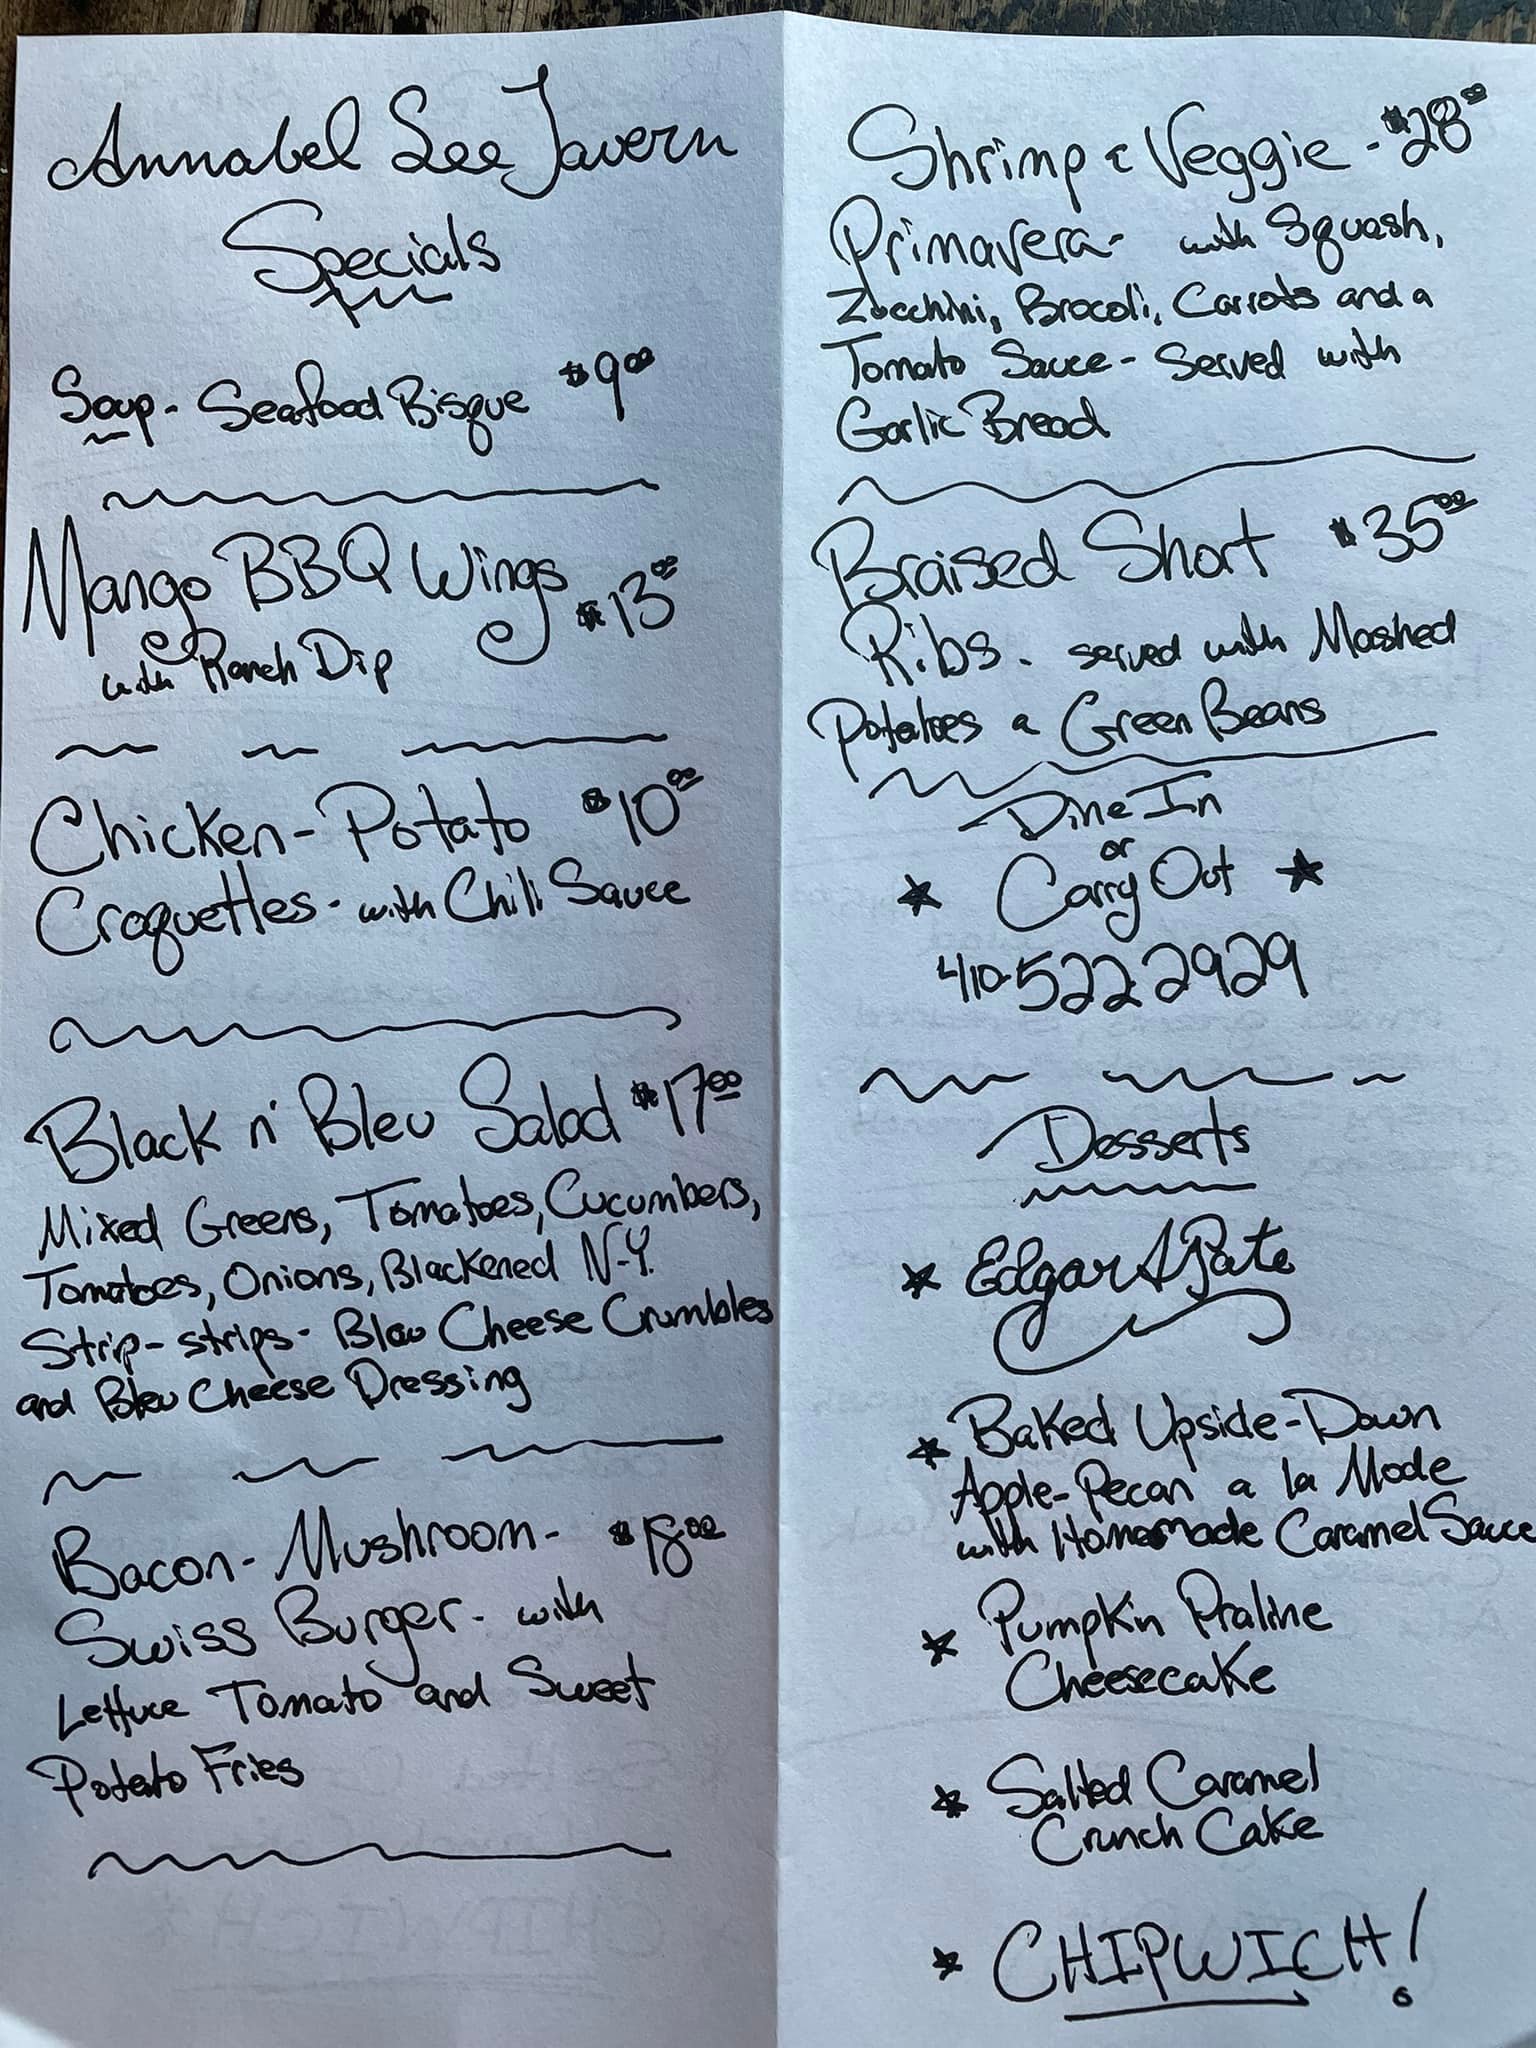 Annabel Lee Tavern
Specials
Soup - Seafood Bisque $9.00
Mango BBQ Wings $13.00
with Ranch Dip
Chicken-Potato $10.00
Croquettes - with Chili Sauce
Black n' Bleu Salad $17.00
Mixed Greens, Tomatoes, Cucumbers,
Tomatoes, Onions, Blackened N-Y.
Strip-strips- Bleu Cheese Crumbles
and Bleu Cheese Dressing
Bacon-Mushroom- $18.00
Swiss Burger - with
Lettuce Tomato and Sweet
Potato Fries
Shrimp & Veggie - $28.00
Primavera - with Squash,
Zucchini, Brocoli, Carrots and a
Tomato Sauce - Served with
Garlic Bread
Braised Short $35.00
Ribs. served with Mashed
Potatoes & Green Beans
Dine In
or
Carry Out
410-522.2929
Desserts
Edgar A Pate
Baked Upside-Down
Apple-Pecan a la Mode
with Homemade Caramel Sauce
Pumpkin Praline
Cheesecake
Salted Caramel
Crunch Cake
CHIPWICH!